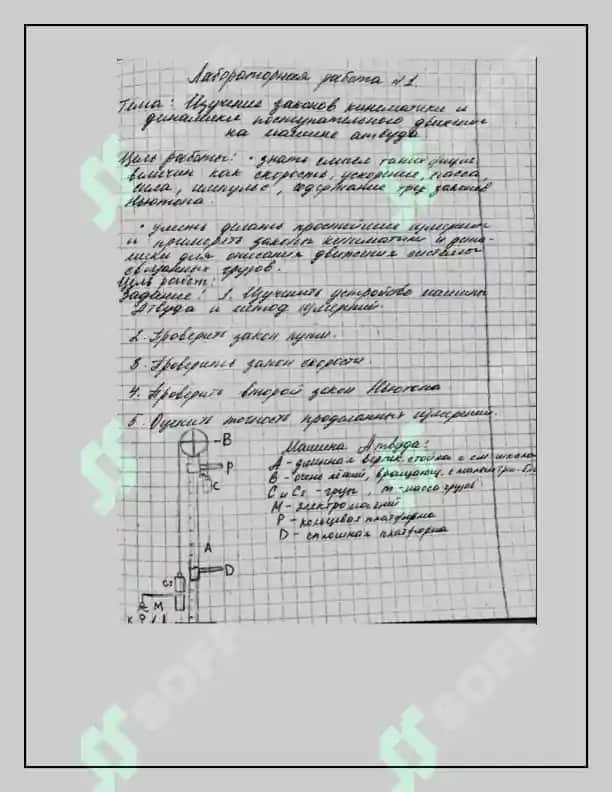 Лабораторная работа №1.
Тема: Изучение законов кинематики и
динамики поступательного движения
на машине атвуда
Цель работы: • знать смысл таких физич.
величин как скорость, ускорение, масса,
сила, импульс, содержание трех законов
Ньютона.
• уметь делать простейшие измерения
и примерять законы кинематики и дина-
мики для описания движения системы
связанных грузов.
Цель работ:
Задание: 1. Изучить устройство машины
Атвуда и метод измерений.
2. Проверить закон пути.
3. Проверить закон скорости.
4. Проверить второй закон Ньютона.
5. Оценить точность проделанных измерений.
Машина Атвуда:
А - длинная вертик. стойка с см шкалой
В - очень лёгкий, вращающ. с малым
С и С₁ - грузы, m - масса грузов
М - электромагнит
Р - кольцевая платформа
D - сплошная платформа
B
P
C
A
D
C₁
M
K
SOFF